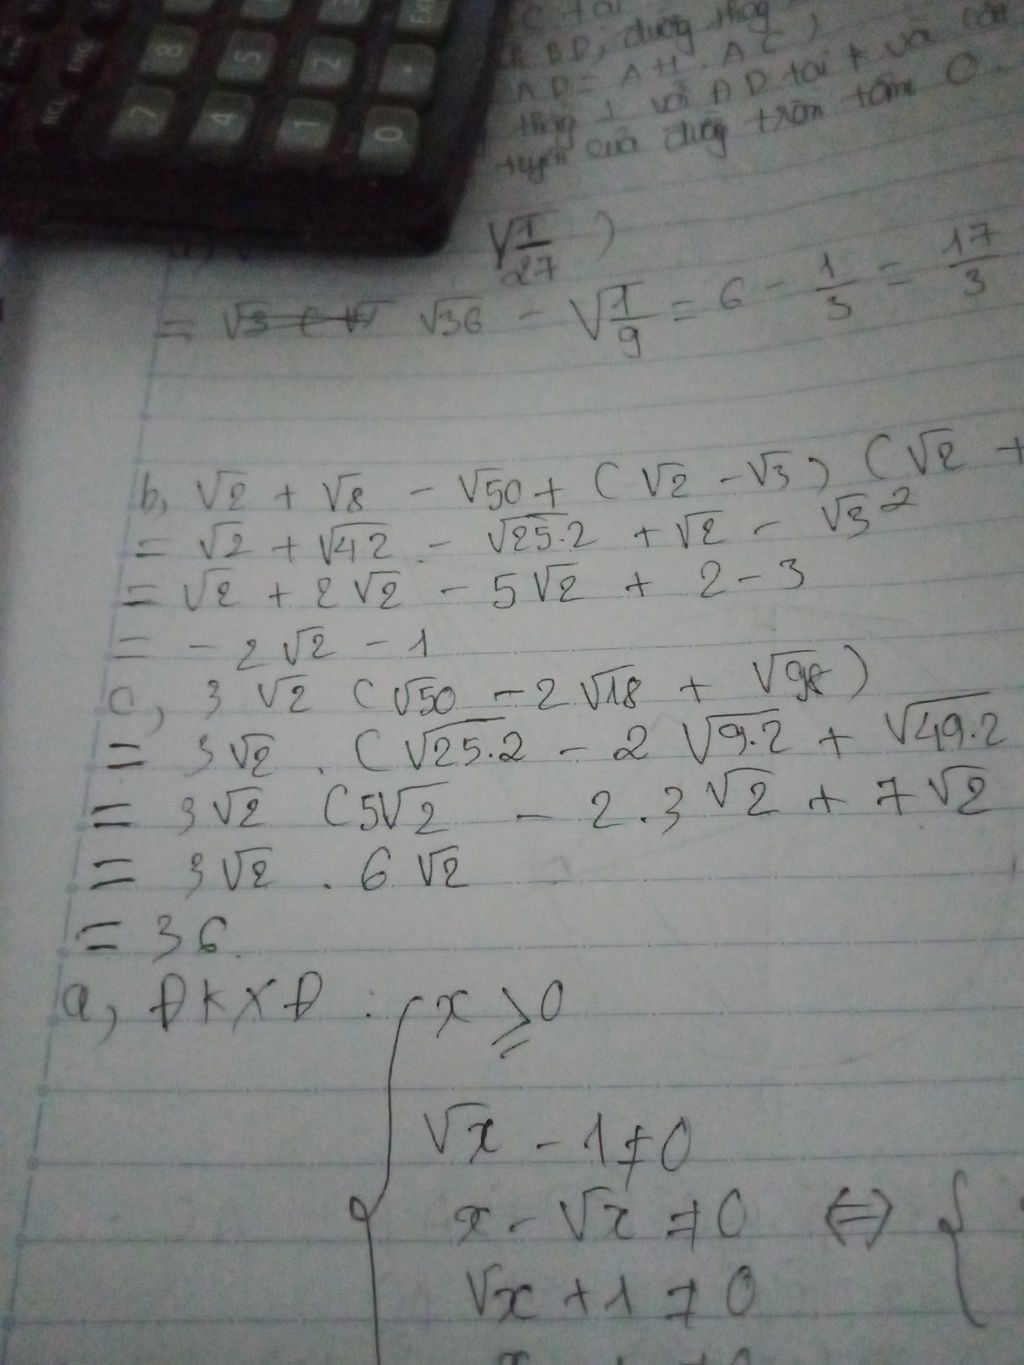 8 5 2 .
7 4 1 0
C tại
BD, đường thẳng
AD = AH . AC,
thẳng ⊥ với AD tại F và
tuyến của đường tròn tâm O.
√1/27 )
= √36 - √1/9 = 6 - 1/3 = 17/3
b, √2 + √8 - √50 + (√2 - √3) (√2 +
= √2 + √42 - √25.2 + √2 - √3²
= √2 + 2√2 - 5√2 + 2 - 3
= - 2√2 - 1
c, 3√2 (√50 - 2√18 + √98)
= 3√2 . (√25.2 - 2√9.2 + √49.2
= 3√2 (5√2 - 2.3√2 + 7√2
= 3√2 . 6√2
= 36.
a, ĐKXĐ : { x ≥ 0
√x - 1 ≠ 0
x - √x ≠ 0 ⇔ {
√x + 1 ≠ 0